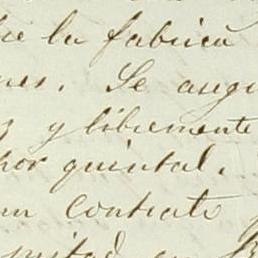 la fabrica
Se
y libremente
por quintal.
un contrato
mitad en